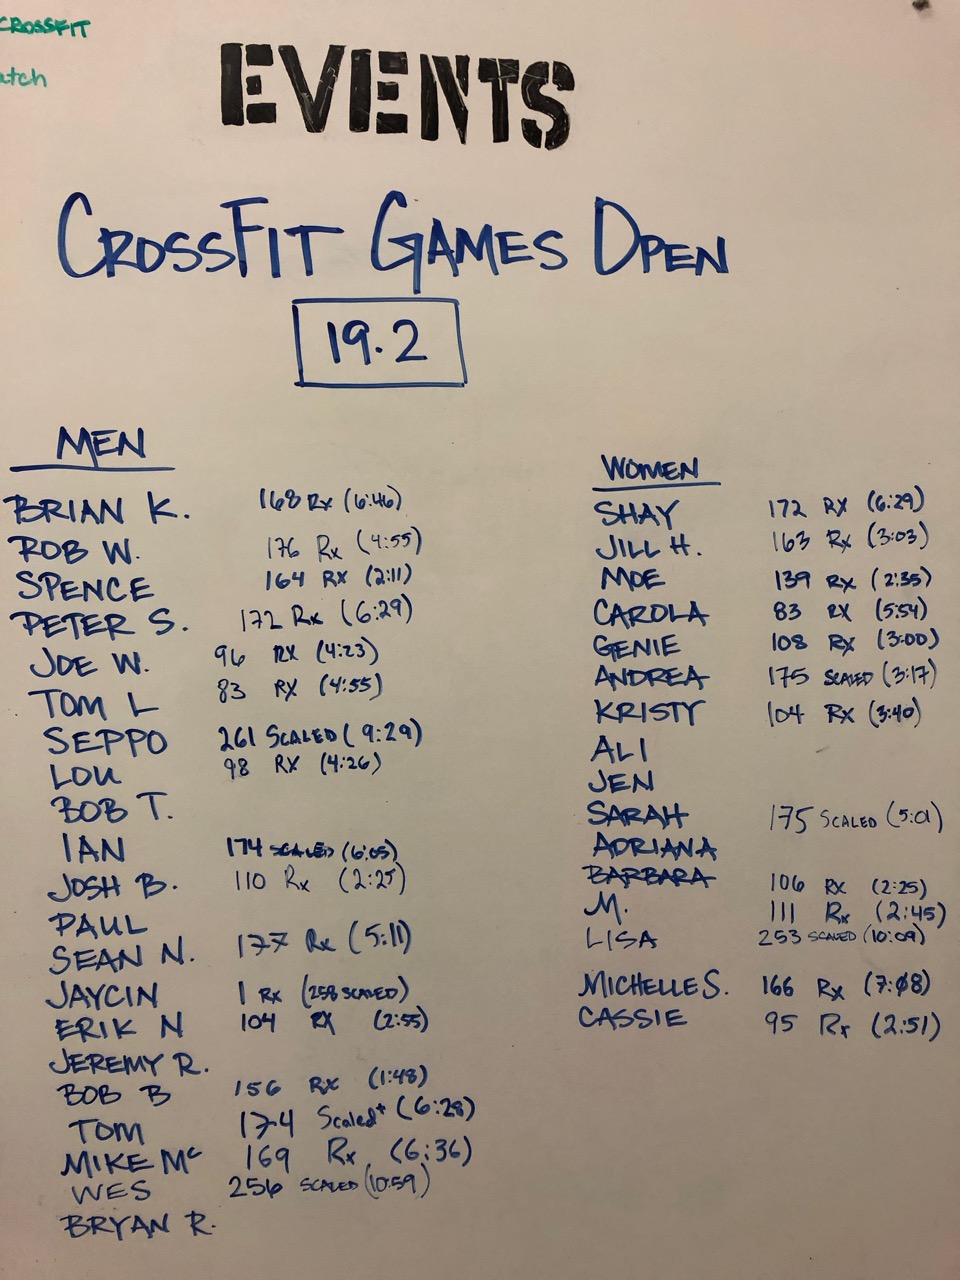 CROSSFIT
atch
EVENTS
CROSSFIT GAMES OPEN
19.2
MEN
BRIAN K. 168 Rx (6:46)
ROB W. 176 Rx (4:55)
SPENCE 164 RX (2:11)
PETER S. 172 Rx (6:29)
JOE W. 96 RX (4:23)
TOM L 83 RX (4:55)
SEPPO 261 SCALED (9:29)
LOU 98 RX (4:26)
BOB T.
IAN 174 SCALED (6:05)
JOSH B. 110 Rx (2:25)
PAUL
SEAN N. 177 Rx (5:11)
JAYCIN 1 Rx (258 SCALED)
ERIK N 104 RX (2:55)
JEREMY R.
BOB B 156 Rx (1:48)
TOM 174 Scaled+ (6:28)
MIKE Mc 169 Rx (6:36)
WES 256 SCALED (10:59)
BRYAN R.
WOMEN
SHAY 172 RX (6:29)
JILL H. 163 Rx (3:03)
MOE 139 Rx (2:35)
CAROLA 83 RX (5:54)
GENIE 108 Rx (3:00)
ANDREA 175 SCALED (3:17)
KRISTY 104 Rx (3:40)
ALI
JEN
SARAH 175 SCALED (5:01)
ADRIANA
BARBARA 106 RX (2:25)
M. 111 Rx (2:45)
LISA 253 SCALED (10:09)
MICHELLE S. 166 Rx (7:08)
CASSIE 95 Rx (2:51)